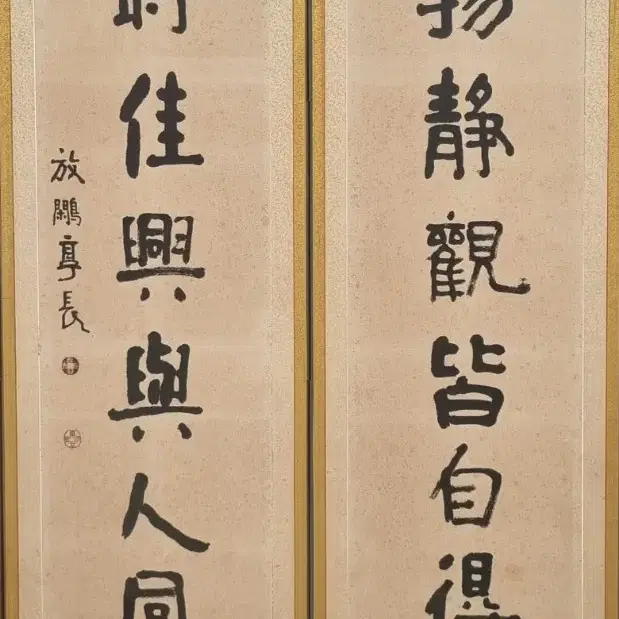 物靜觀皆自得
時佳興與人同
放鷳亭長